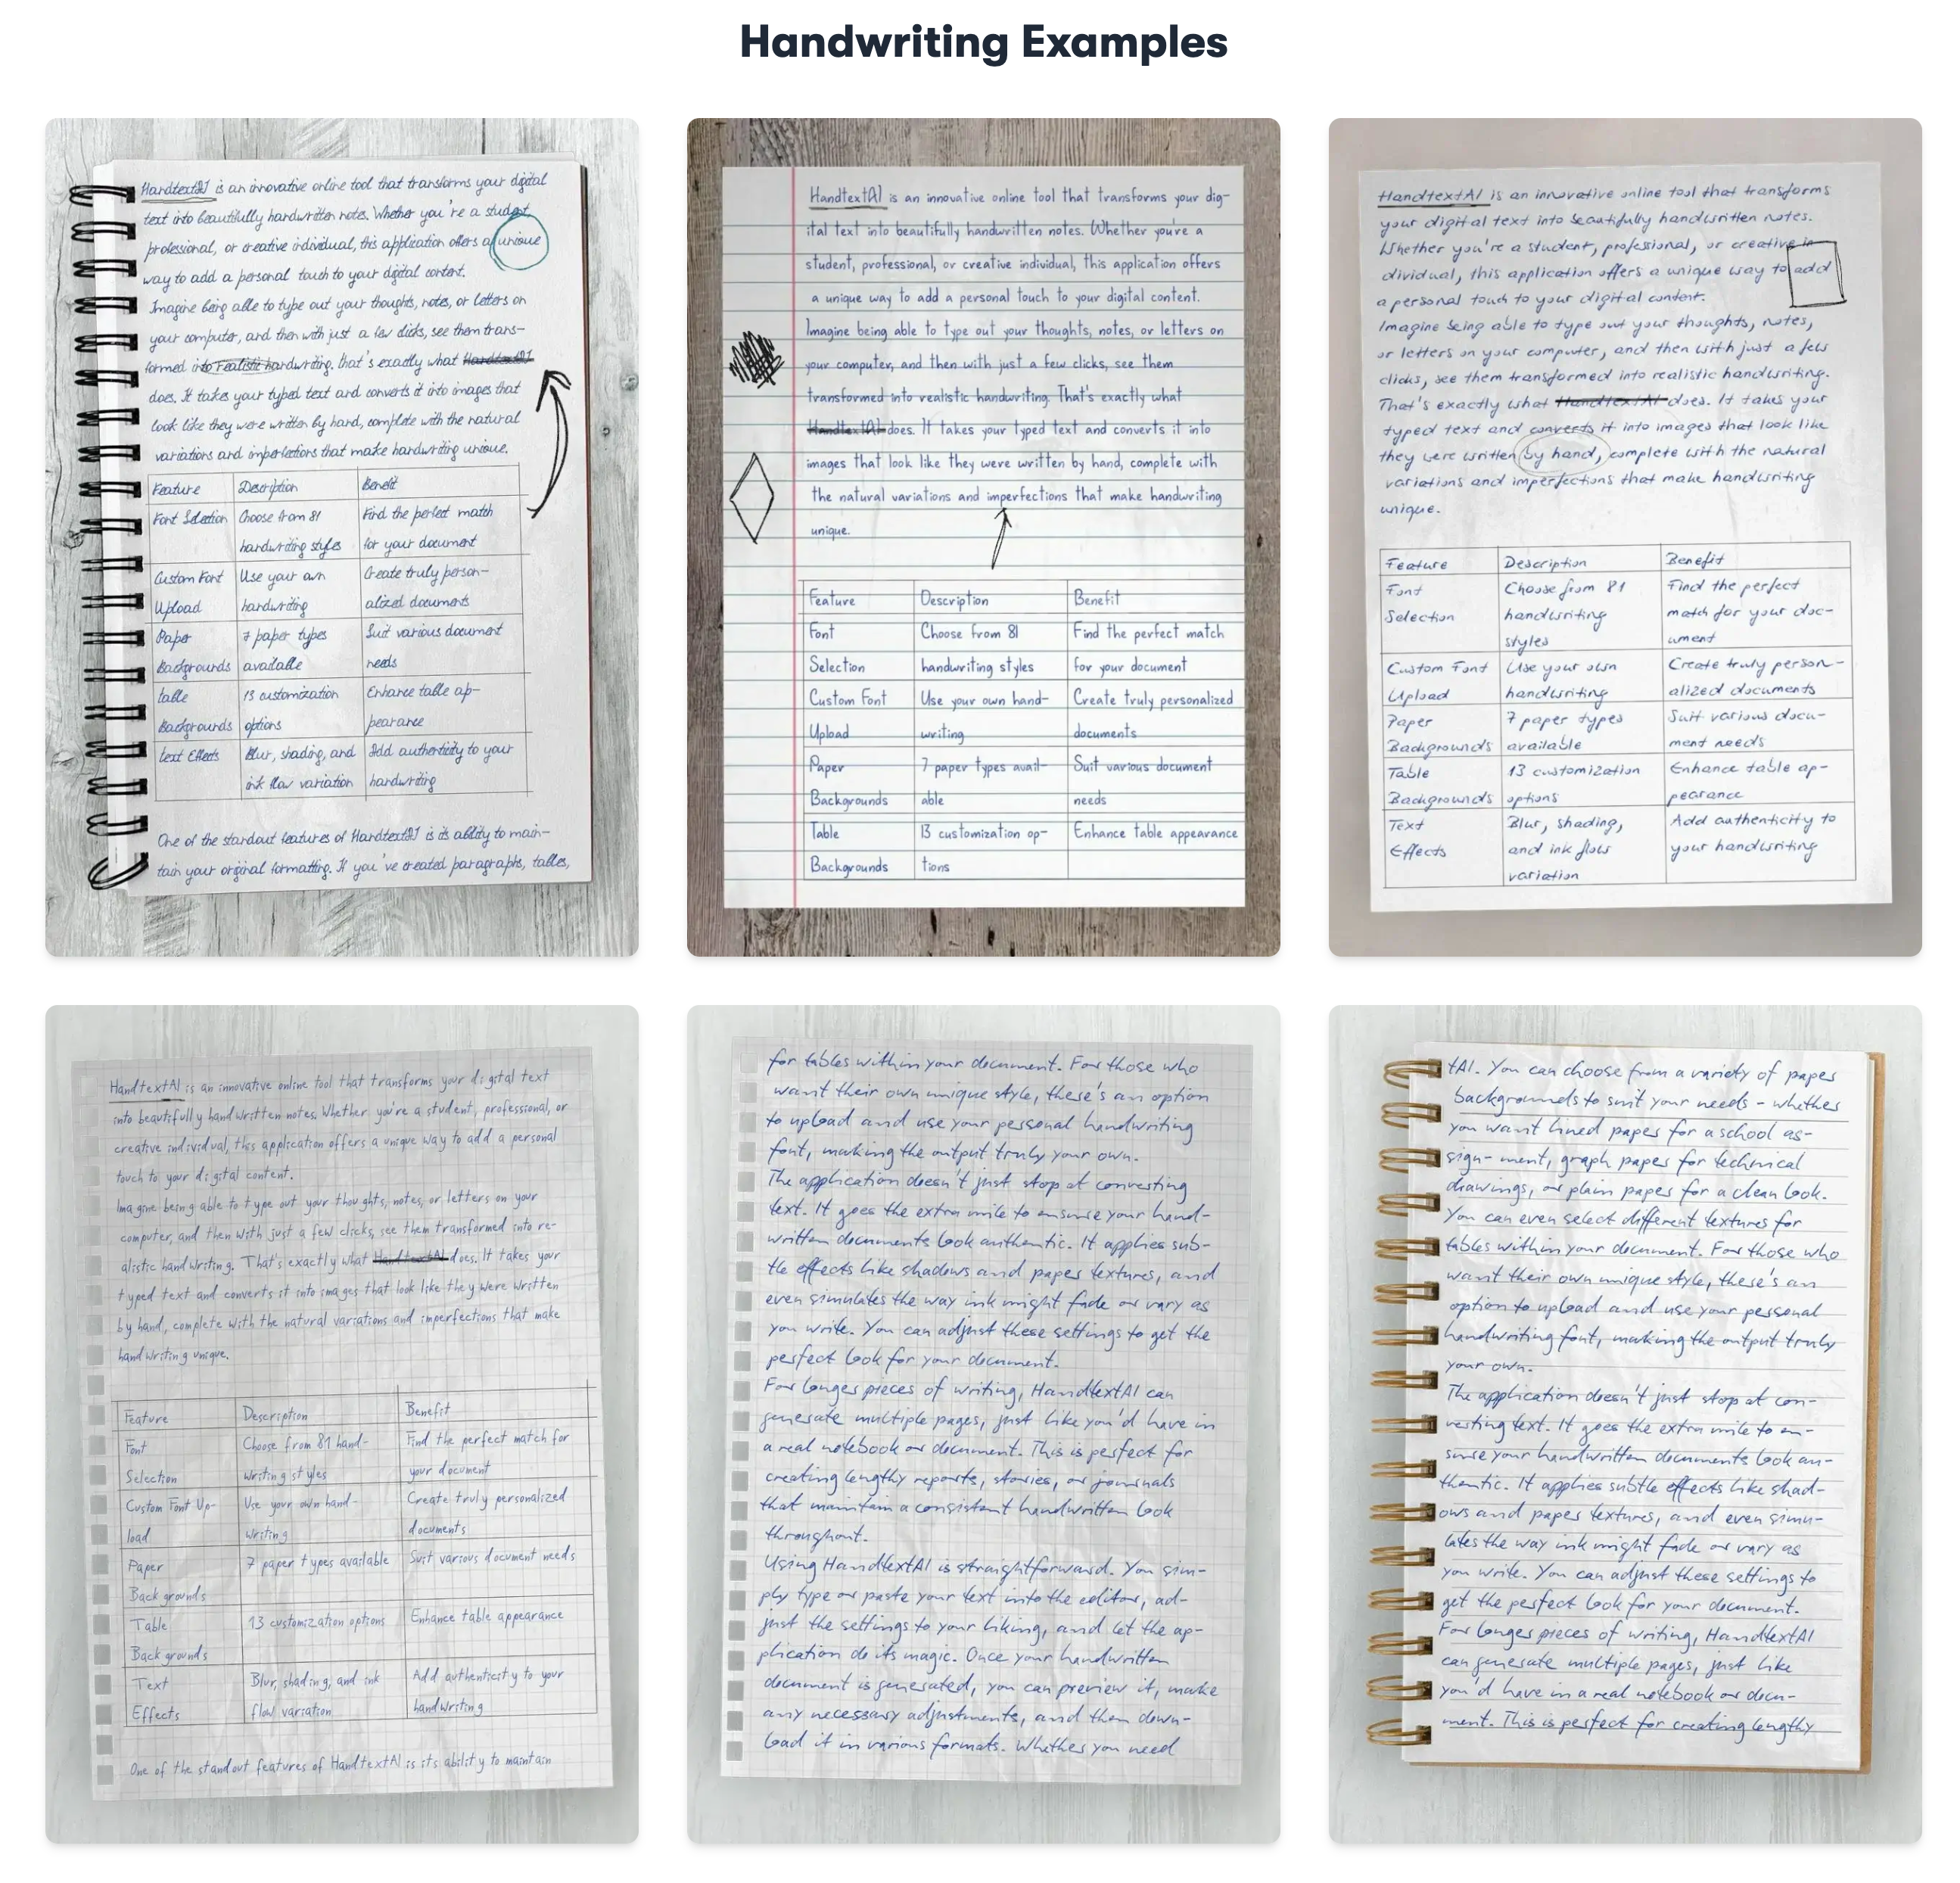 Handwriting Examples
HandtextAI is an innovative online tool that transforms your digital
text into beautifully handwritten notes. Whether you're a student,
professional, or creative individual, this application offers a unique
way to add a personal touch to your digital content.
Imagine being able to type out your thoughts, notes, or letters on
your computer, and then with just a few clicks, see them trans-
formed into realistic handwriting. That's exactly what HandtextAI
does. It takes your typed text and converts it into images that
look like they were written by hand, complete with the natural
variations and imperfections that make handwriting unique.
Feature Description Benefit
Font Selection Choose from 81 Find the perfect match
handwriting styles for your document
Custom Font Use your own Create truly person-
Upload handwriting alized documents
Paper 7 paper types Suit various document
Backgrounds available needs
Table 13 customization Enhance table ap-
Backgrounds options pearance
Text Effects Blur, shading, and Add authenticity to your
ink flow variation handwriting
One of the standout features of HandtextAI is its ability to main-
tain your original formatting. If you've created paragraphs, tables,
HandtextAI is an innovative online tool that transforms your dig-
ital text into beautifully handwritten notes. Whether you're a
student, professional, or creative individual, this application offers
a unique way to add a personal touch to your digital content.
Imagine being able to type out your thoughts, notes, or letters on
your computer, and then with just a few clicks, see them
transformed into realistic handwriting. That's exactly what
HandtextAI does. It takes your typed text and converts it into
images that look like they were written by hand, complete with
the natural variations and imperfections that make handwriting
unique.
Feature Description Benefit
Font Choose from 81 Find the perfect match
Selection handwriting styles for your document
Custom Font Use your own hand- Create truly personalized
Upload writing documents
Paper 7 paper types avail- Suit various document
Backgrounds able needs
Table 13 customization op- Enhance table appearance
Backgrounds tions
HandtextAI is an innovative online tool that transforms
your digital text into beautifully handwritten notes.
Whether you're a student, professional, or creative in-
dividual, this application offers a unique way to add
a personal touch to your digital content.
Imagine being able to type out your thoughts, notes,
or letters on your computer, and then with just a few
clicks, see them transformed into realistic handwriting.
That's exactly what HandtextAI does. It takes your
typed text and converts it into images that look like
they were written by hand, complete with the natural
variations and imperfections that make handwriting
unique.
Feature Description Benefit
Font Choose from 81 Find the perfect
Selection handwriting match for your doc-
styles ument
Custom Font Use your own Create truly person-
Upload handwriting alized documents
Paper 7 paper types Suit various docu-
Backgrounds available ment needs
Table 13 customization Enhance table ap-
Backgrounds options pearance
Text Blur, shading, Add authenticity to
Effects and ink flow your handwriting
variation
HandtextAI is an innovative online tool that transforms your digital text
into beautifully handwritten notes. Whether you're a student, professional, or
creative individual, this application offers a unique way to add a personal
touch to your digital content.
Imagine being able to type out your thoughts, notes, or letters on your
computer, and then with just a few clicks, see them transformed into re-
alistic handwriting. That's exactly what HandtextAI does. It takes your
typed text and converts it into images that look like they were written
by hand, complete with the natural variations and imperfections that make
handwriting unique.
Feature Description Benefit
Font Choose from 81 hand- Find the perfect match for
Selection writing styles your document
Custom Font Up- Use your own hand- Create truly personalized
load writing documents
Paper 7 paper types available Suit various document needs
Backgrounds
Table 13 customization options Enhance table appearance
Backgrounds
Text Blur, shading, and ink Add authenticity to your
Effects flow variation handwriting
One of the standout features of HandtextAI is its ability to maintain
for tables within your document. For those who
want their own unique style, there's an option
to upload and use your personal handwriting
font, making the output truly your own.
The application doesn't just stop at converting
text. It goes the extra mile to ensure your hand-
written documents look authentic. It applies sub-
tle effects like shadows and paper textures, and
even simulates the way ink might fade or vary as
you write. You can adjust these settings to get the
perfect look for your document.
For longer pieces of writing, HandtextAI can
generate multiple pages, just like you'd have in
a real notebook or document. This is perfect for
creating lengthy reports, stories, or journals
that maintain a consistent handwritten look
throughout.
Using HandtextAI is straightforward. You sim-
ply type or paste your text into the editor, ad-
just the settings to your liking, and let the ap-
plication do its magic. Once your handwritten
document is generated, you can preview it, make
any necessary adjustments, and then down-
load it in various formats. Whether you need
tAI. You can choose from a variety of paper
backgrounds to suit your needs - whether
you want lined paper for a school as-
sign-ment, graph paper for technical
drawings, or plain paper for a clean look.
You can even select different textures for
tables within your document. For those who
want their own unique style, there's an
option to upload and use your personal
handwriting font, making the output truly
your own.
The application doesn't just stop at con-
verting text. It goes the extra mile to en-
sure your handwritten documents look au-
thentic. It applies subtle effects like shad-
ows and paper textures, and even simu-
lates the way ink might fade or vary as
you write. You can adjust these settings to
get the perfect look for your document.
For longer pieces of writing, HandtextAI
can generate multiple pages, just like
you'd have in a real notebook or docu-
ment. This is perfect for creating lengthy